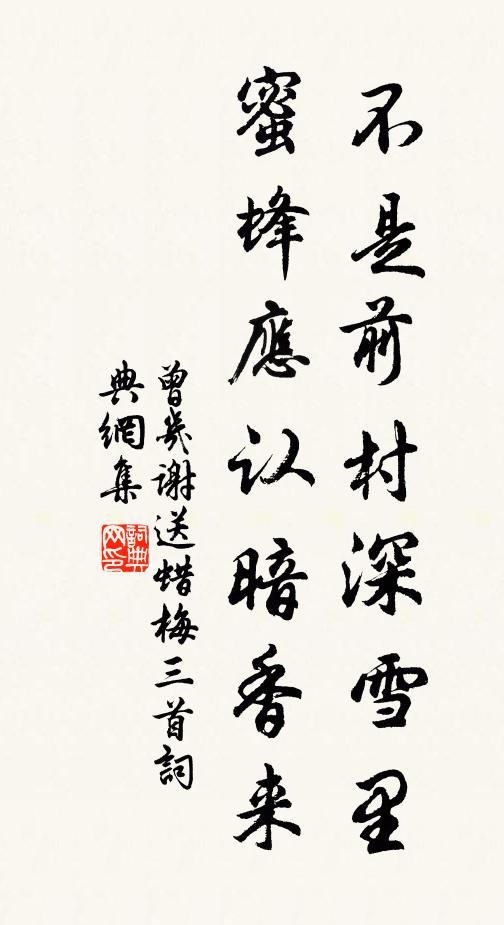 不是前村深雪里
蜜蜂應认暗香来
曾幾谢送蜡梅三首詞
典網集
詞典
网印